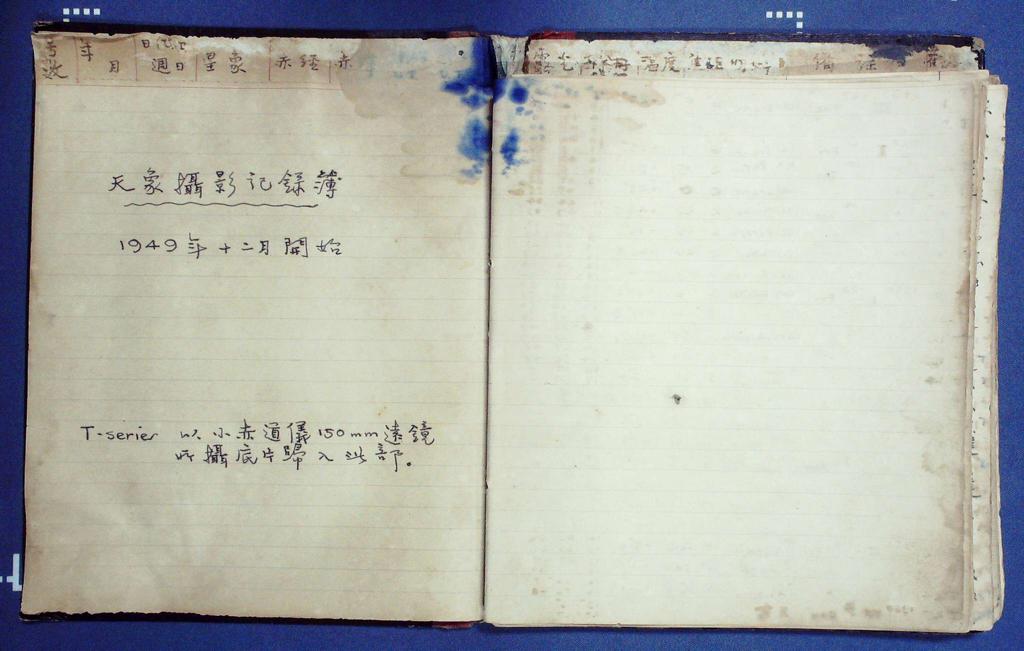 号数 年月 日 週日 星象 赤經 赤
露光 温度
天象攝影记録簿
1949年十二月開始
T-series 以小赤道儀150mm遠鏡
所攝底片歸入此部。